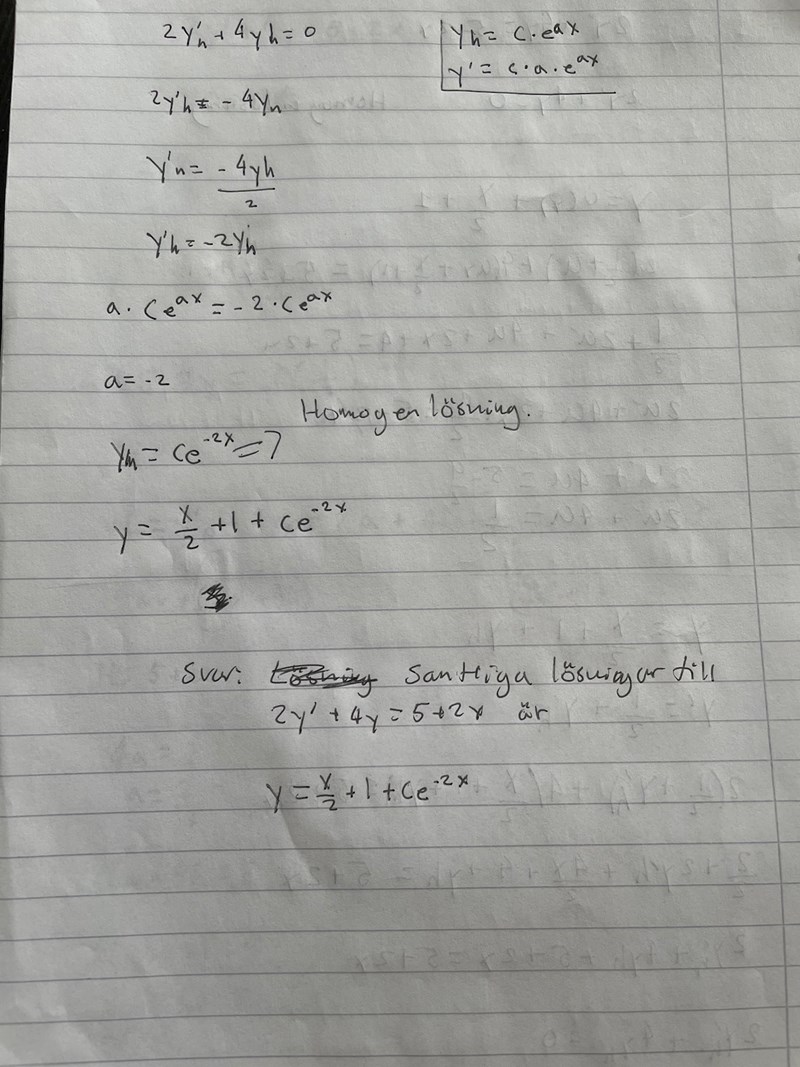 2y'h + 4yh = 0
yh = c·e^ax
y' = c·a·e^ax
2y'h = -4yh
y'h = -4yh/2
y'h = -2yh
a · Ce^ax = -2 · Ce^ax
a = -2
Homogen lösning.
yh = Ce^-2x =>
y = x/2 + 1 + Ce^-2x
Svar: Samtliga lösningar till
2y' + 4y = 5 + 2x är
y = x/2 + 1 + Ce^-2x